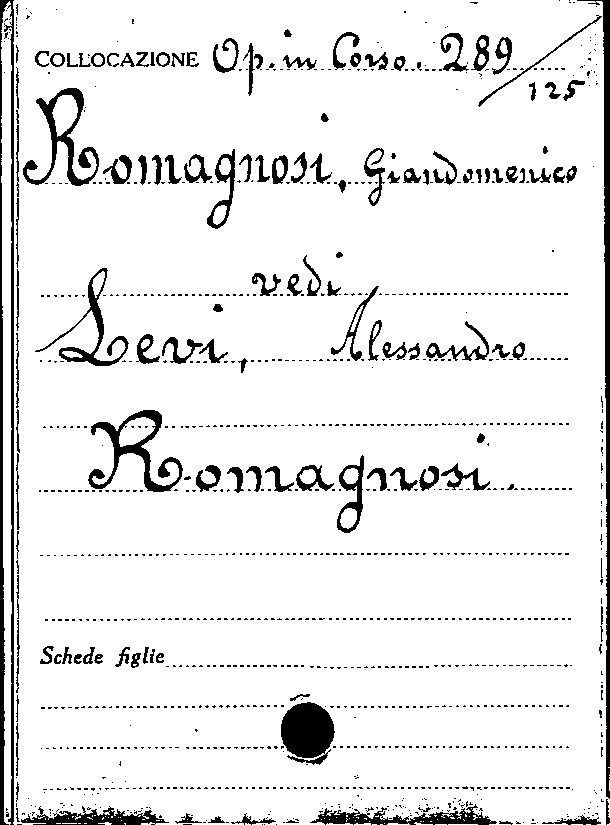 COLLOCAZIONE Op. in Corso. 289/125
Romagnosi, Giandomenico
vedi
Levi, Alessandro
Romagnosi.
Schede figlie